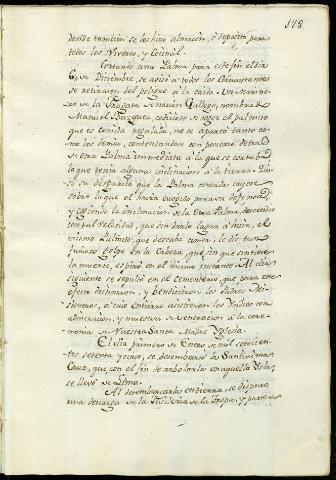 178
donde tambien se les hizo almacen, ò deposito para
todos los Viveres, y Cocina.
Cortando una Palma para este fin el dia
6. de Diciembre, se avisó a todos los Circunstantes
se retirasen del peligro à la caida. Un Marine-
ro de la Fragata de nacion Gallego, nombrado
Manuel Bazquez, codicioso de coger el palmito
que es comida regalada, no se apartó tanto co-
mo los demas, contentandose con ponerse detras
de otra Palma immediata à la que se cortaba,
la que tenia alguna inclinacion à la tierra. Qui-
so su desgracia que la Palma cortada cayese
sobre la que el havia escogido para su defensa,
y cogiendo la inclinacion de la otra Palma, descendio
con tal velocidad, que sin darle lugar à huir, el
mismo Palmito, que deseaba comer, le dio tan
furioso golpe en la Cabeza, que sin que sintiese
la muerte, espiró en el mismo instante. Al dia
siguiente se sepultó en el Cementerio, que para este
efecto destinaron, y bendicieron los Padres Mi-
sioneros, a cuio Entierro asistieron los Yndios con
admiracion, y muestras de veneracion à la cere-
monia de Nuestra Santa Madre Yglesia.
El dia primero de Enero de mil setecien-
tos setenta y cinco, se desembarcó la Santisima
Cruz, que con el fin de arbolarla en aquella Ysla,
se llevó de Lima.
Al desembarcarla en tierra, se dispuso
una descarga de la Fusileria de la Tropa, y parte de